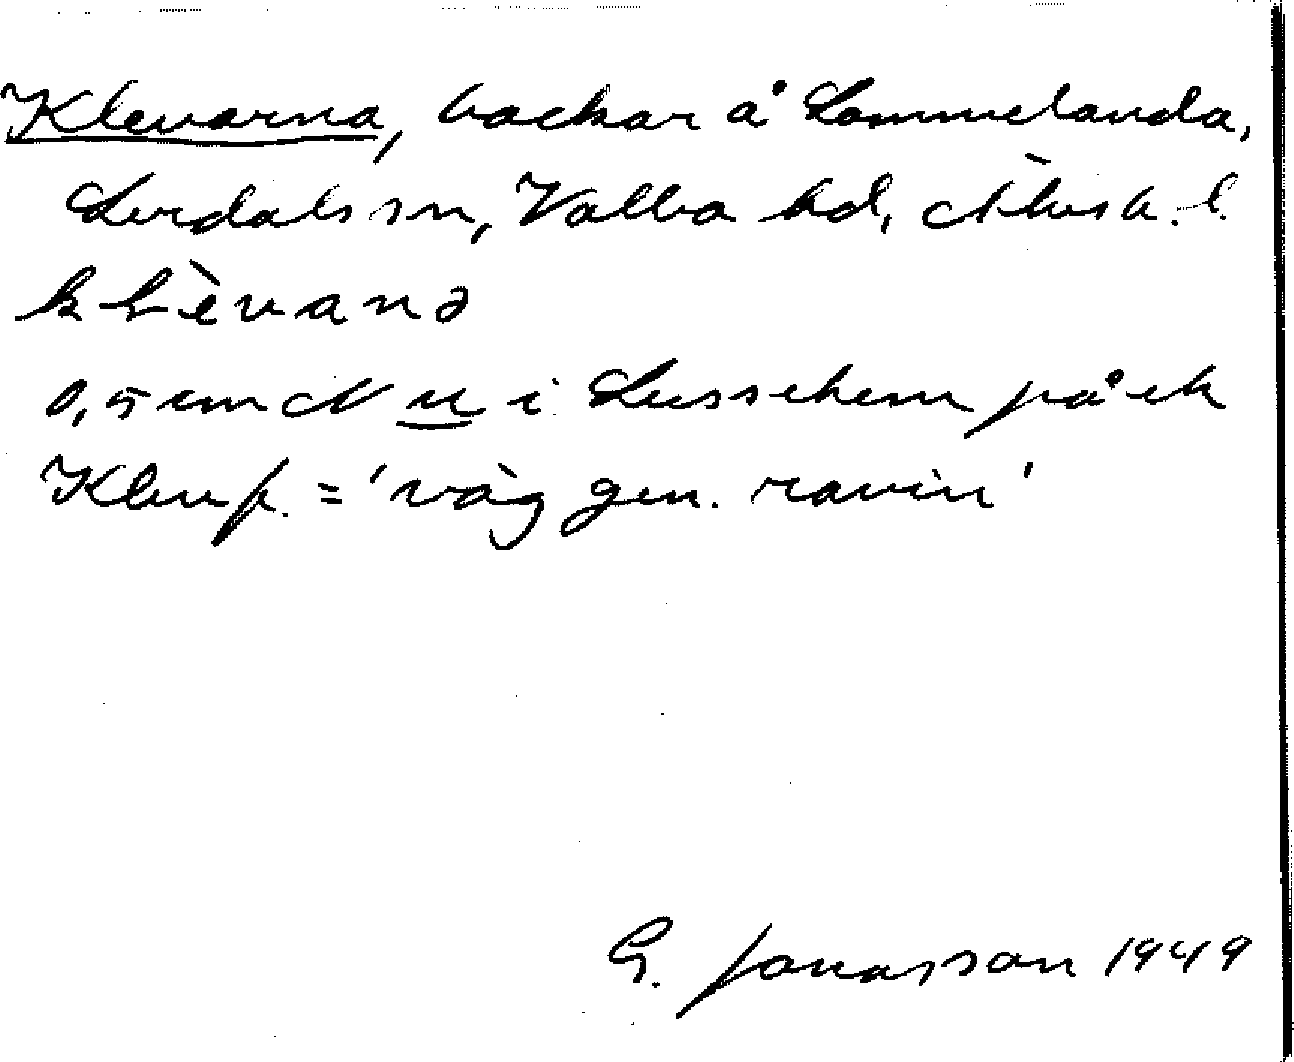 Klevarna, backar å Lommelanda,
Lurdals sn, Valbo hd, Älvsb. l.
kLèvanə
0,5 cm N u i Lussehem på ek
Klev f. = 'väg gen. ravin'
G. Jonasson 1949